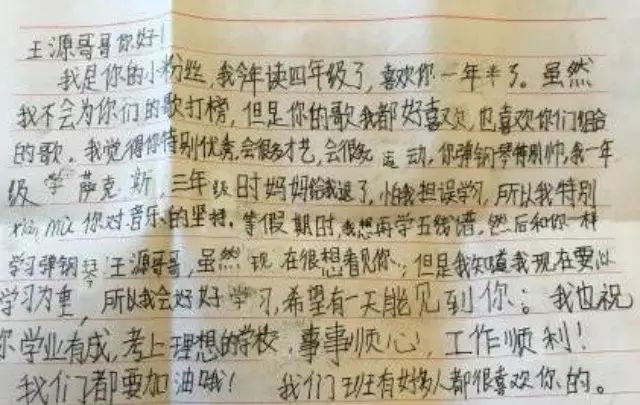 王源哥哥你好!
我是你的小粉丝,我今年读四年级了,喜欢你一年半了。虽然
我不会为你们的歌打榜,但是你的歌我都好喜欢,也喜欢你们组合
的歌。我觉得你特别优秀,会很多才艺,会很多运动,你弹钢琴特别帅,我一年
级学萨克斯,三年级时妈妈给我退了,怕我担误学习,所以我特别
xiàn mù你对音乐的坚持。等假期时,我想再学五线谱,然后和你一样
学习弹钢琴 王源哥哥,虽然现在很想看见你;但是我知道我现在要以
学习为重,所以我会好好学习,希望有一天能见到你;我也祝
你学业有成,考上理想的学校,事事顺心,工作顺利!
我们都要加油哦! 我们班有好多人都很喜欢你的。